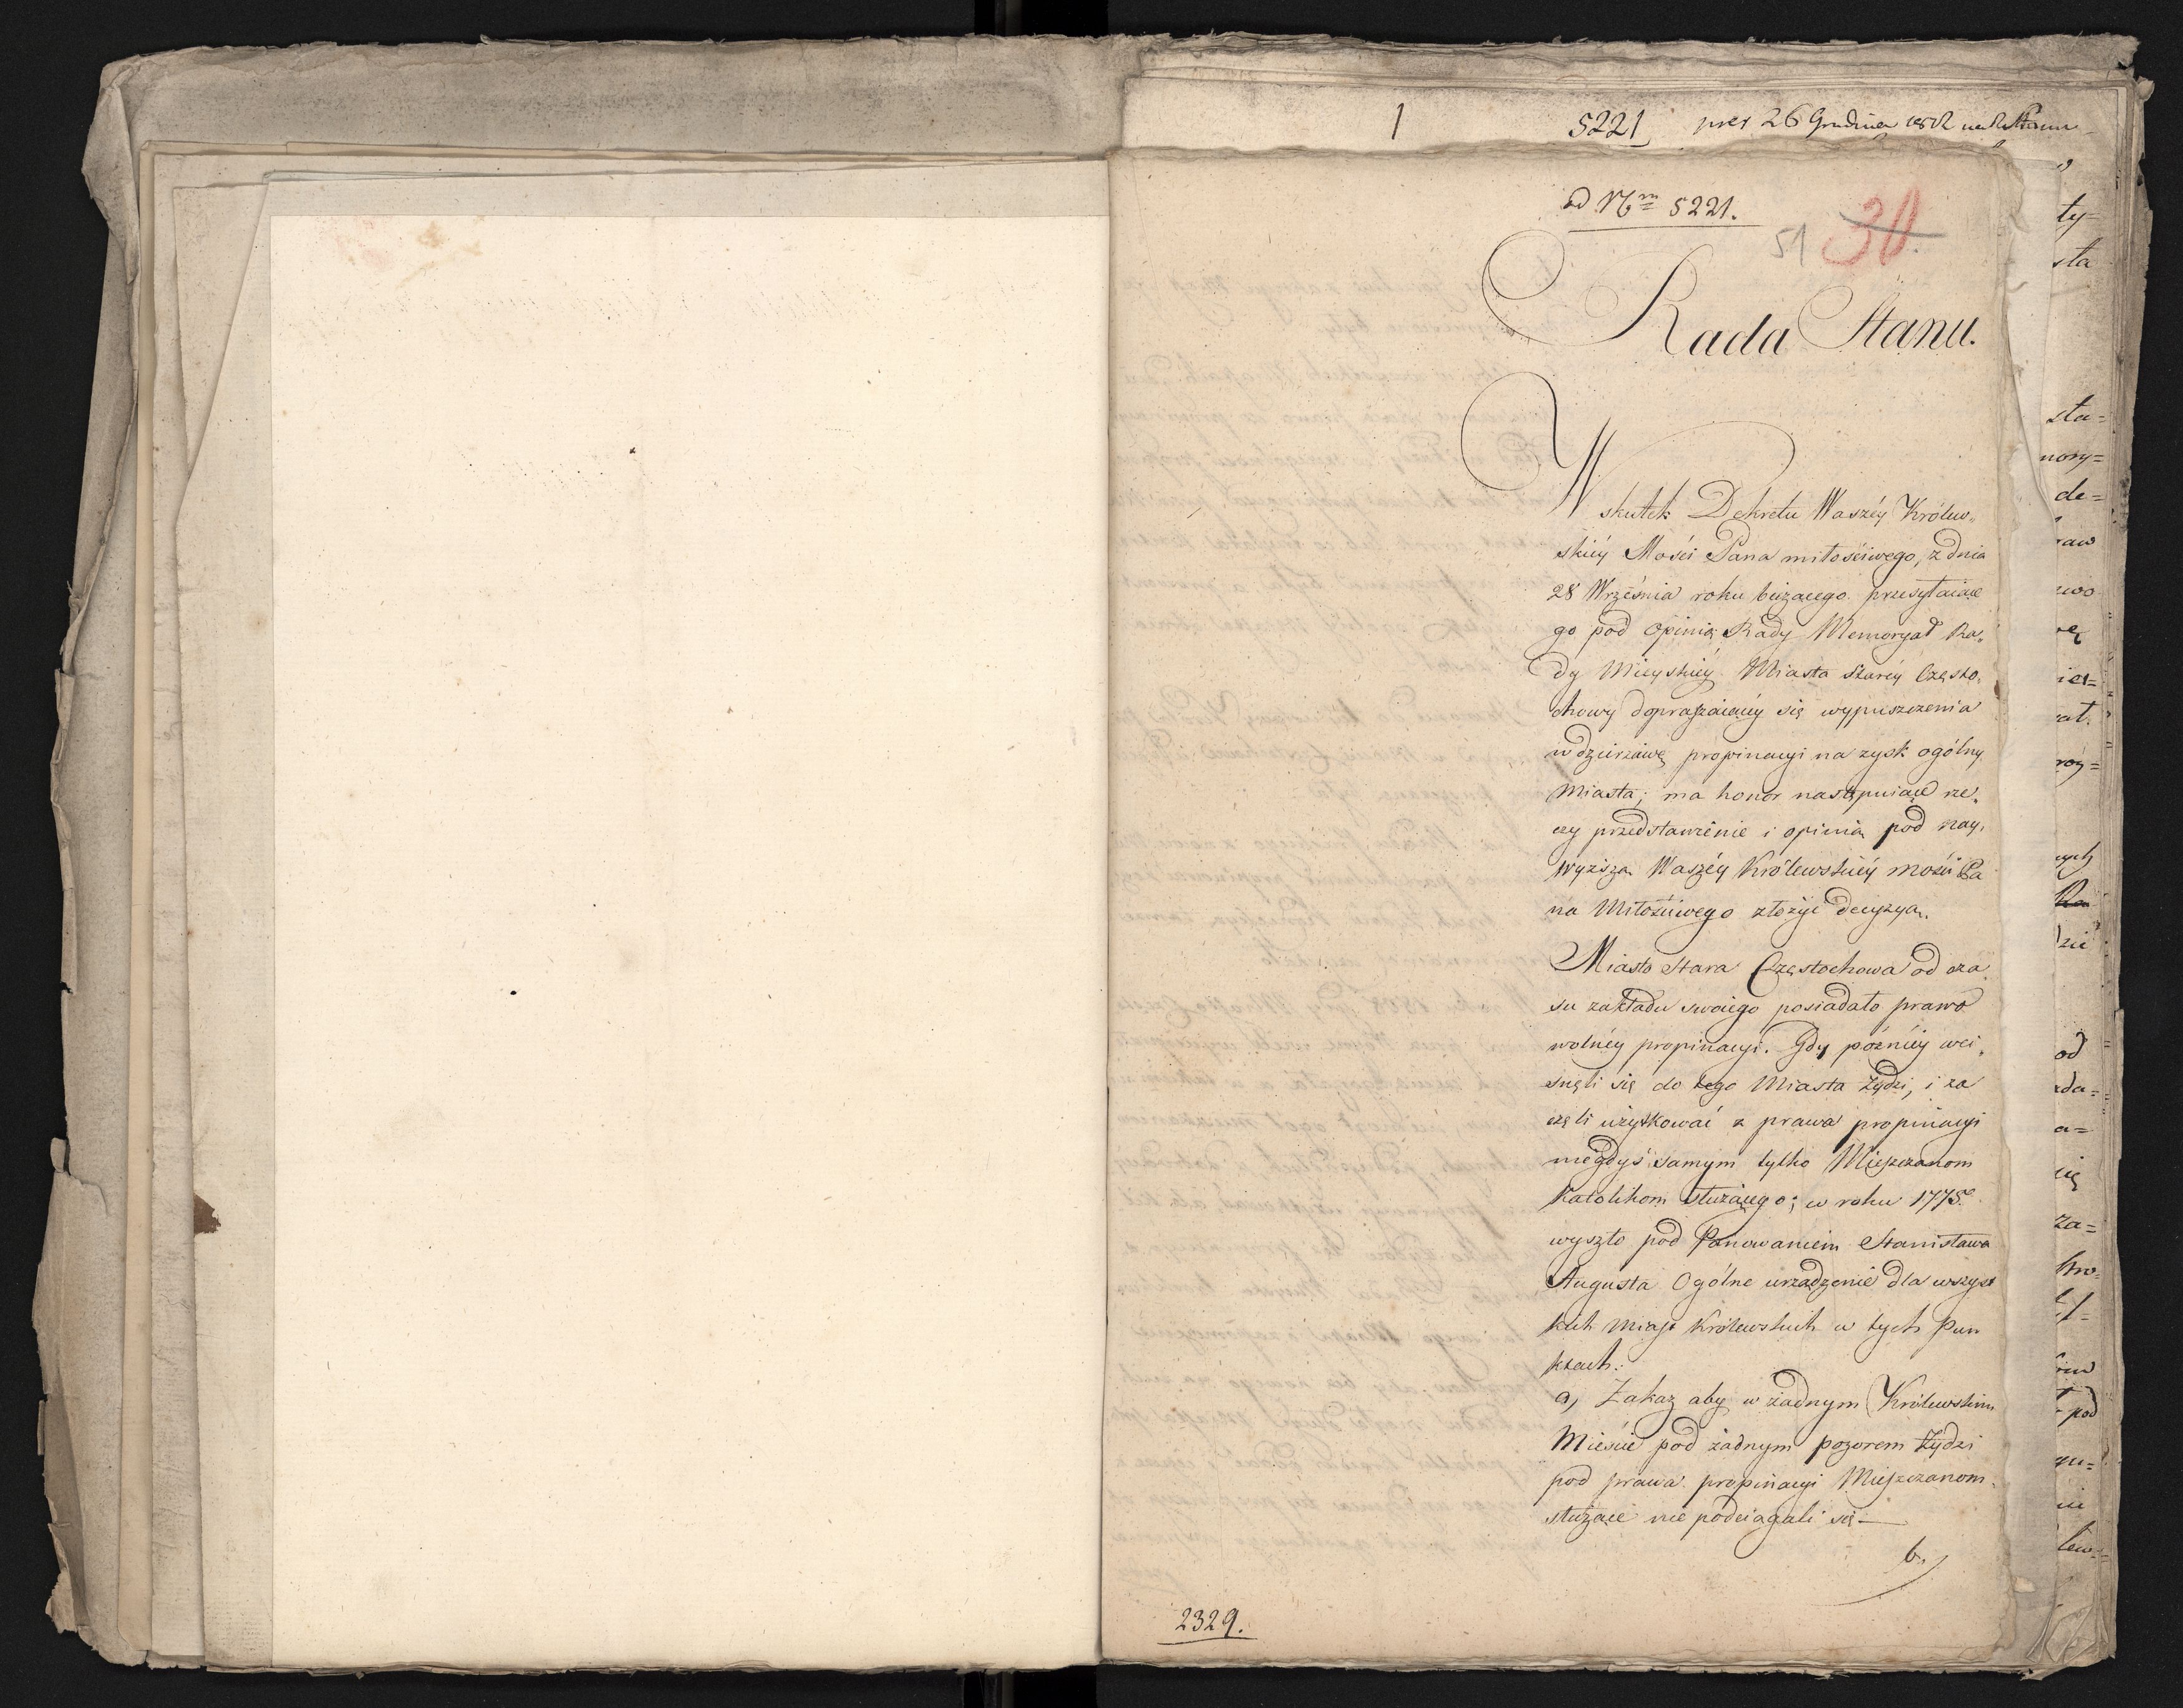 1
5221 pres 26 Grudnia
ad Nrm 5221.
51 30.
Rada Stanu.
W skutek Dekretu Waszéy Królew„
skiéy Mości Pana miłościwego, z dnia
28 Września roku bieżącego przesyłaiące
go pod Opinią Rady Memoryał Ra„
dy Mieyskiéy Miasta Staréy Często„
chowy dopraszaiącéy się wypuszczenia
w dzierżawę propinacyi na zysk ogólny
Miasta; ma honor następuiące rze„
czy przedstawienie i opinią pod nay„
wyższą Waszéy Królewskiéy Mości Pa
na Miłościwego złożyć decyzyą.
Miasto Stara Częstochowa od cza
su zakładu swoiego posiadało prawo
wolnéy propinacyi. Gdy późniéy wci„
snęli się do tego Miasta Żydzi, i za
częli użytkować z prawa propinacyi
niegdyś samym tylko Mieszczanom
Katolikom służącego; w roku 1775.
wyszło pod Panowaniem Stanisława
Augusta Ogólne urządzenie dla wszyst
kich miast Królewskich w tych Pun
ktach:
a, Zakaz aby w żadnym Królewskim
Mieście pod żadnym pozorem Żydzi
pod prawa propinacyi Mieszczanom
służące nie podciągali się —
b,
2329.
ty=
sta
sta=
mory=
de=
raw
rey=
od
da=
a=
się
za=
pod
lew=